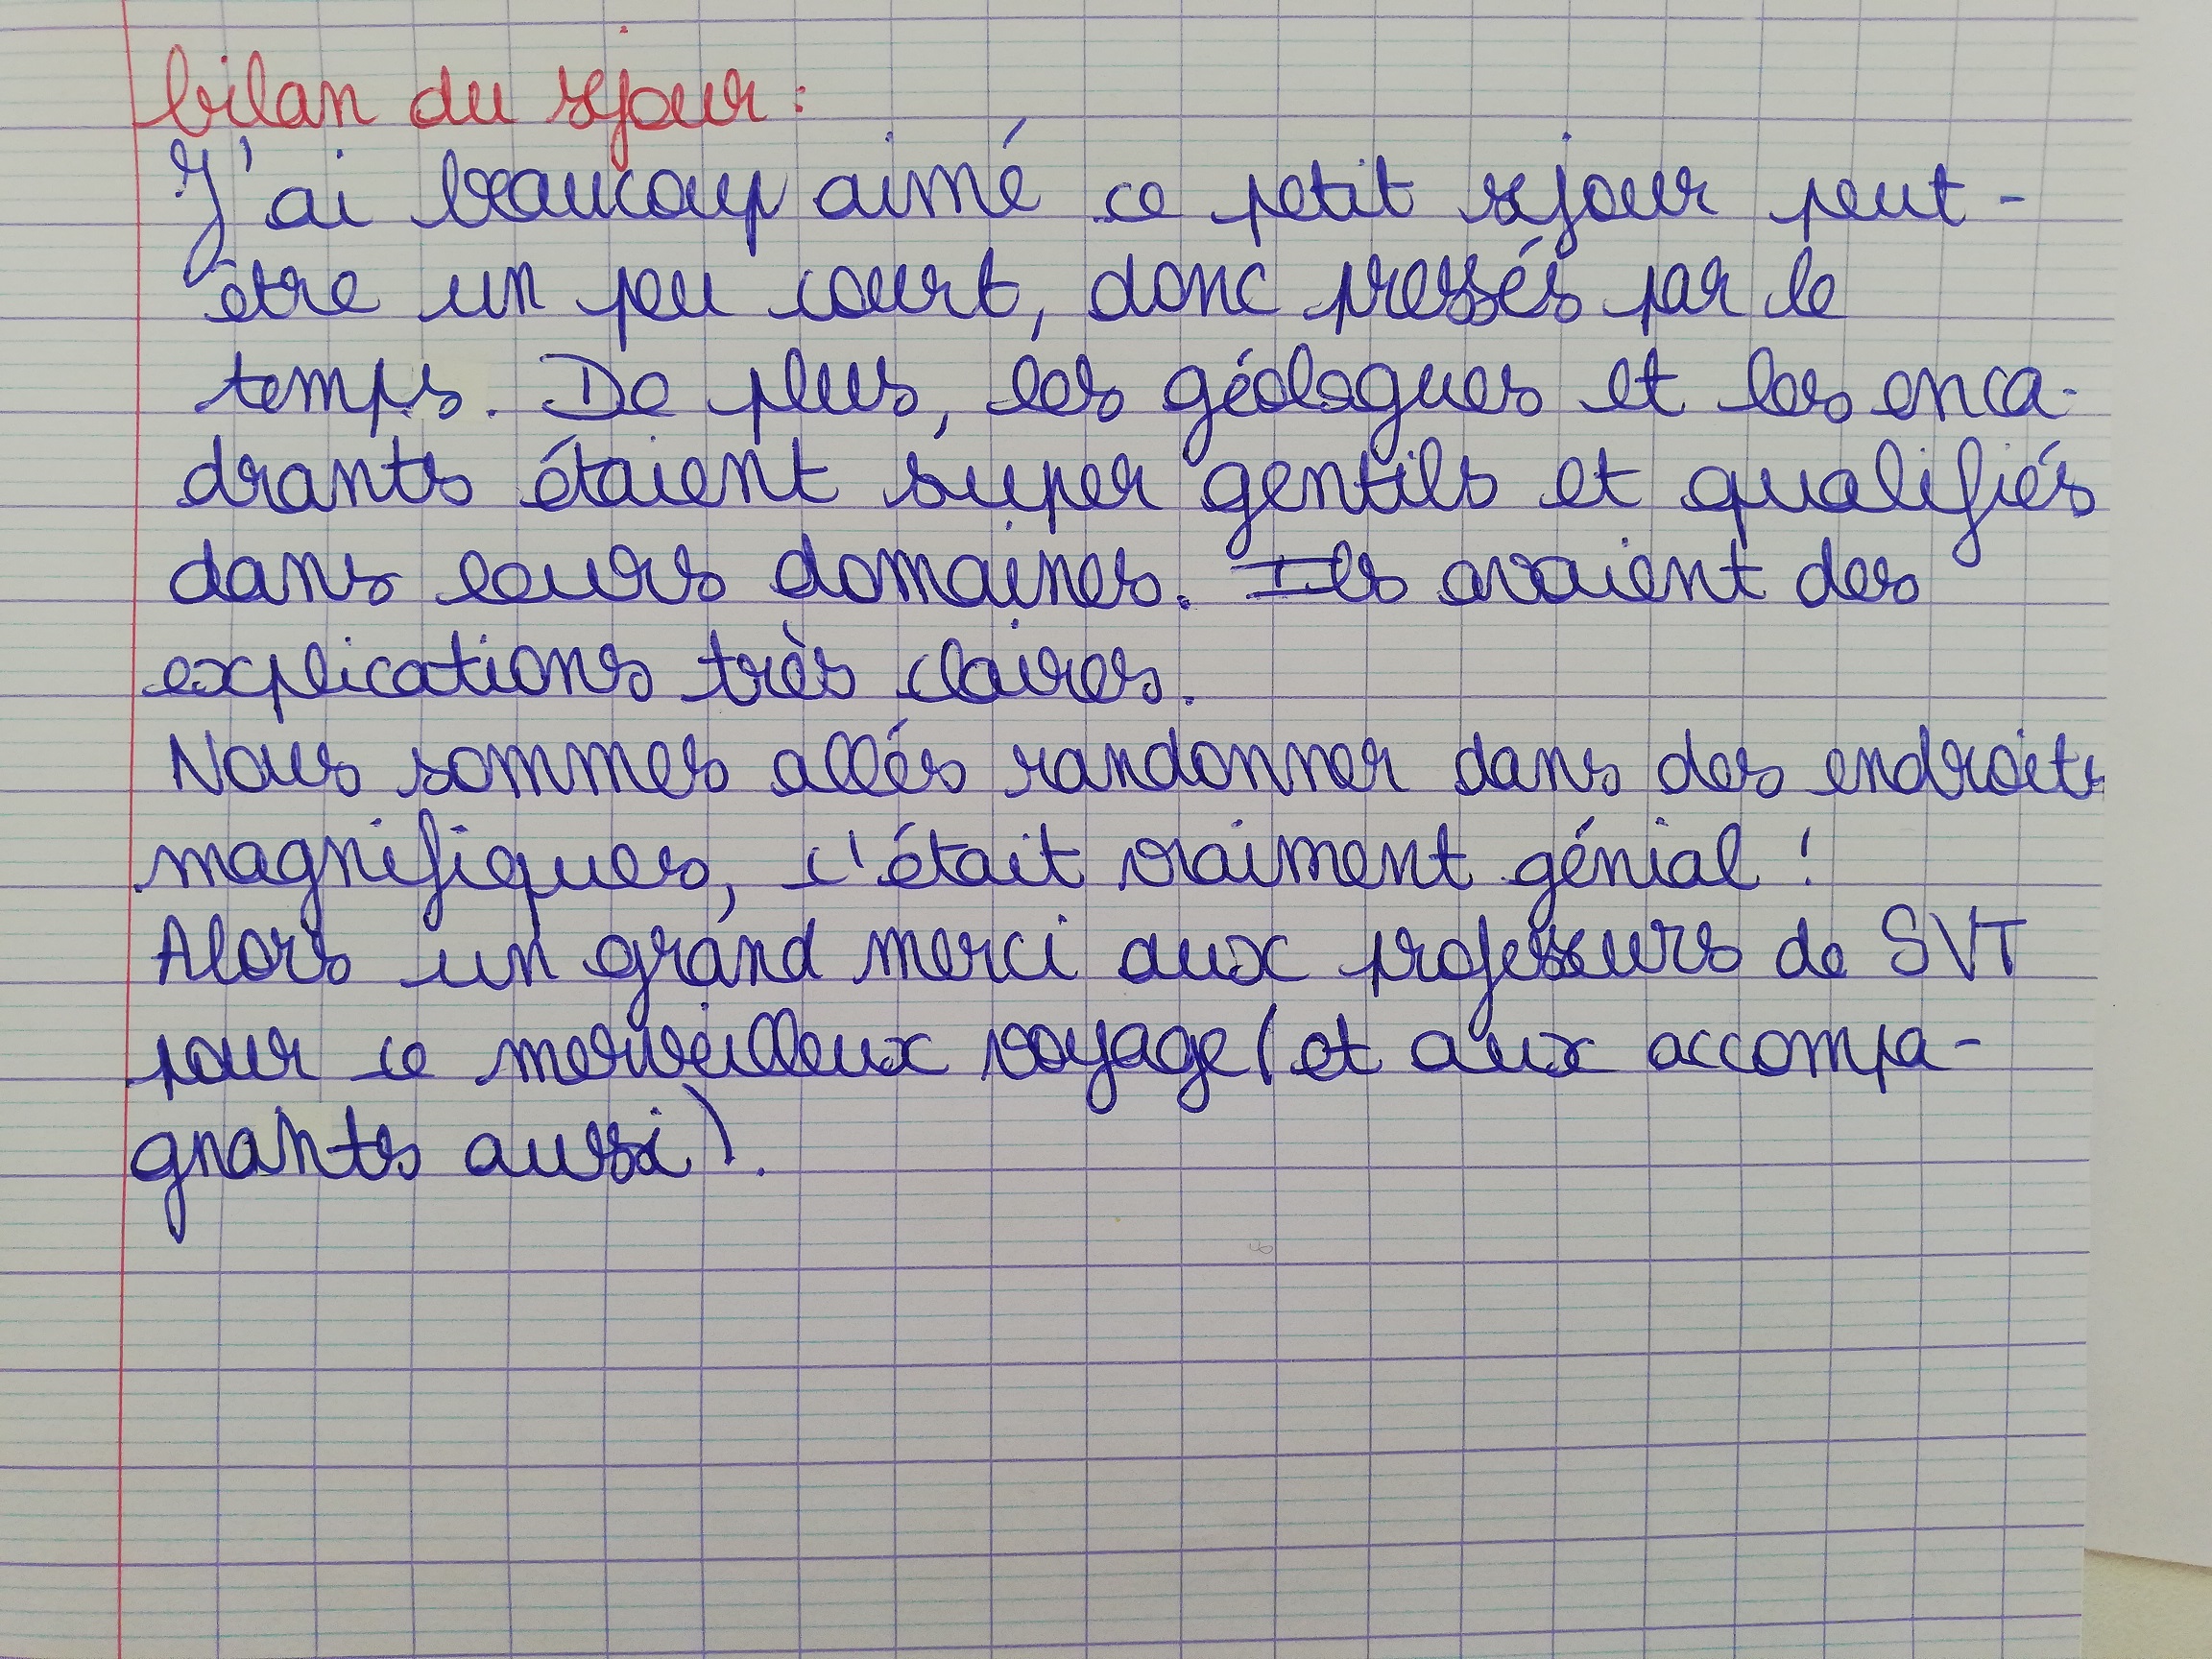 bilan du séjour :
J'ai beaucoup aimé ce petit séjour peut-
être un peu court, donc pressés par le
temps. De plus, les géologues et les enca-
drants étaient super gentils et qualifiés
dans leurs domaines. Ils avaient des
explications très claires.
Nous sommes allés randonner dans des endroits
magnifiques, c'était vraiment génial !
Alors un grand merci aux professeurs de SVT
pour ce merveilleux voyage (et aux accompa-
gnants aussi).